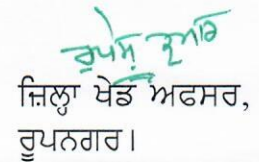 ਰੁਪੇਸ਼ ਕੁਮਾਰ
ਜ਼ਿਲ੍ਹਾ ਖੇਡ ਅਫਸਰ,
ਰੂਪਨਗਰ।